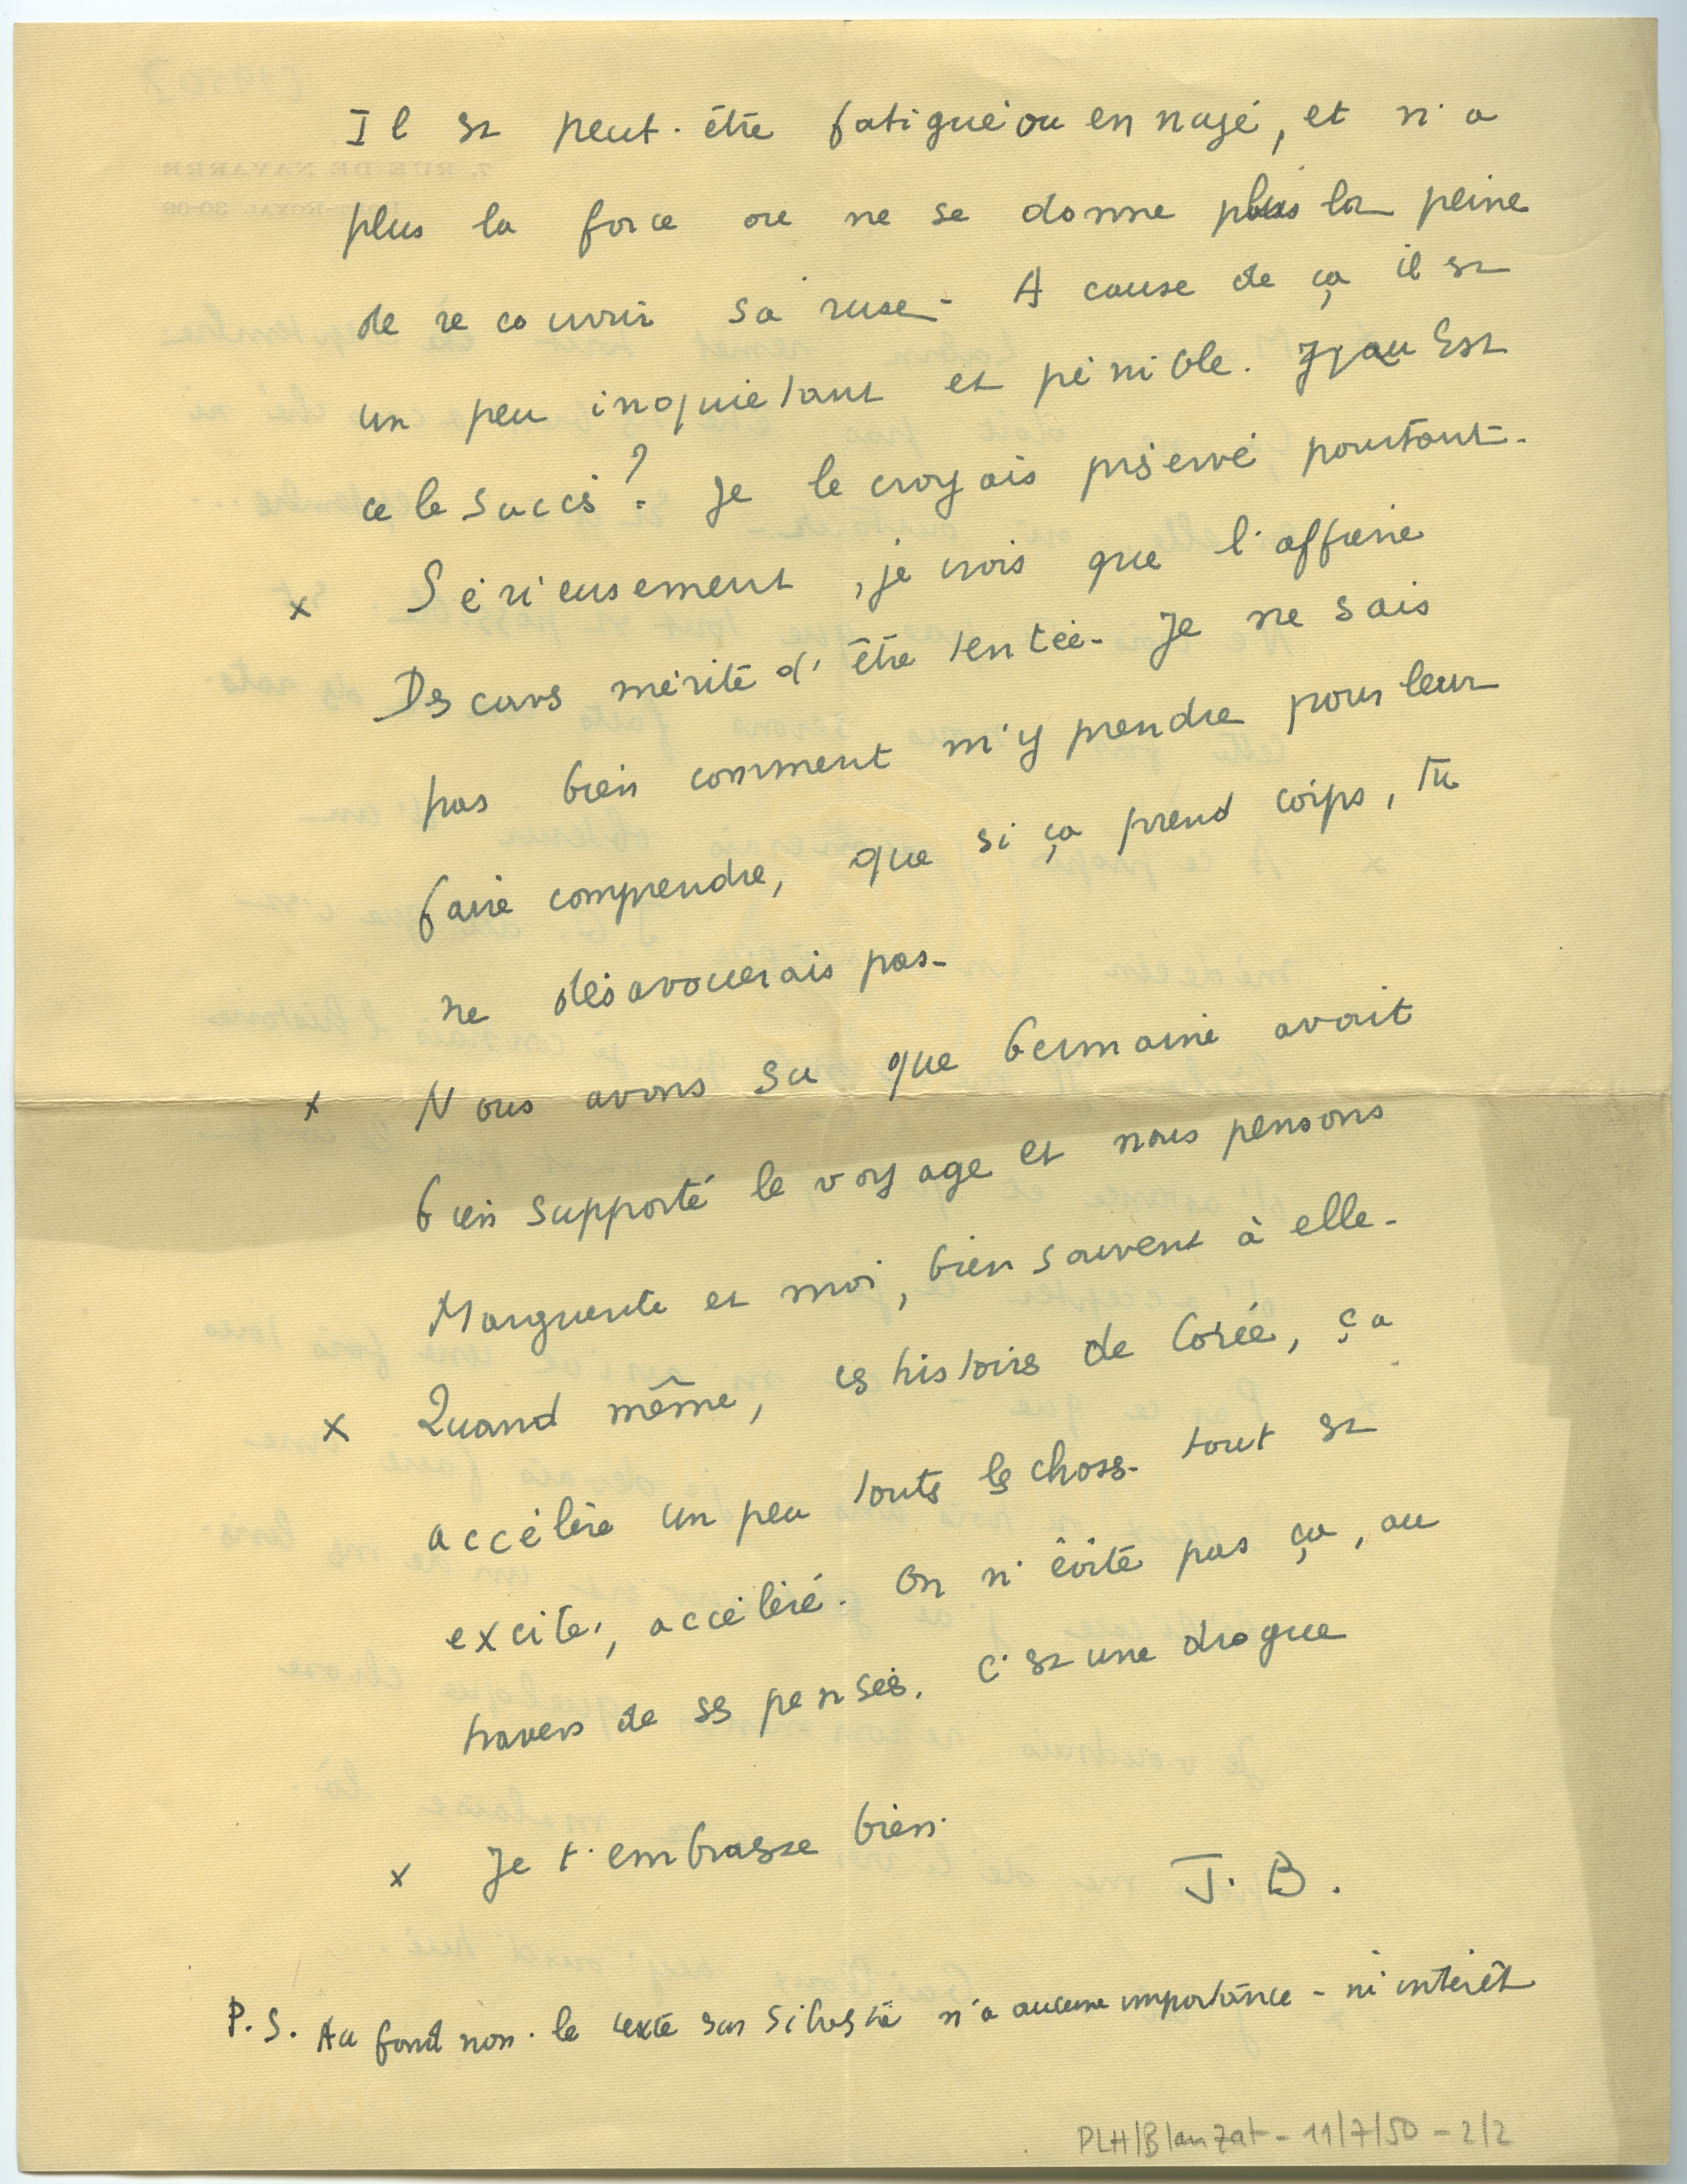 Il est peut-être fatigué ou ennuyé, et n'a
plus la force ou ne se donne plus la peine
de recouvrir sa ruse - A cause de ça il est
un peu inquiétant et pénible. Est
ce le succès ? Je le croyais préservé pourtant -
x Sérieusement, je crois que l'affaire
Descaves mérite d'être tentée - Je ne sais
pas bien comment m'y prendre pour leur
faire comprendre, que si ça prend corps, tu
ne désavouerais pas -
x Nous avons su que Germaine avait
bien supporté le voyage et nous pensons
Marguerite et moi, bien souvent à elle -
x Quand même, ces histoires de Corée, ça
accélère un peu toutes les choses - tout est
excité, accéléré. On n'évite pas ça, au
travers de ses pensées. C'est une drogue
x Je t'embrasse bien.
J. B.
P. S. Au fond non. le texte sur n'a aucune importance - ni intérêt
PLH/Blanzat - 11/7/50 - 2/2
7, RUE DE NAVARRE